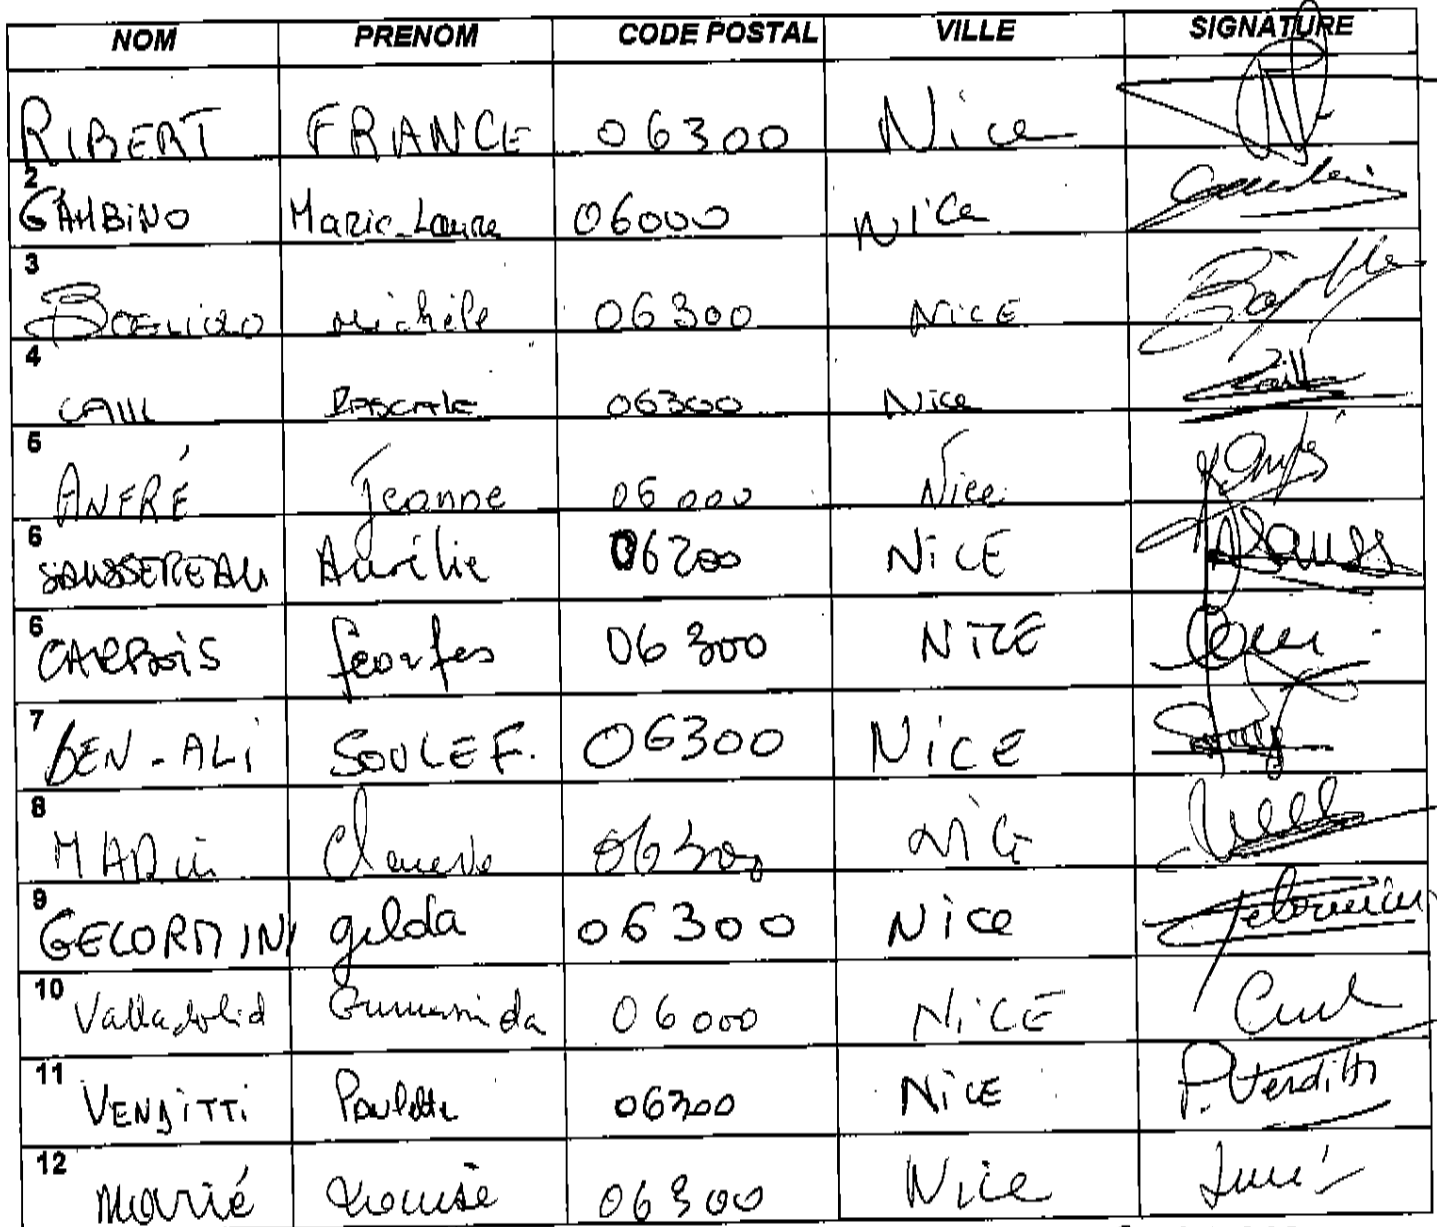 NOM PRENOM CODE POSTAL VILLE SIGNATURE
RIBERT FRANCE 06300 Nice
2 GAMBINO Marie-Laure 06000 Nice
3 Michèle 06300 NICE
4 PASCALE 06300 Nice
5 ANFRÉ Jeanne 06000 Nice
6 SAUSSEREAU Aurélie 06200 NICE
6 CARBOIS Georges 06300 NICE
7 BEN-ALI SOULEF. 06300 NICE
8 06300 NICE
9 GELORMINI gilda 06300 Nice
10 Valladolid 06000 NICE
11 Paulette 06300 NICE P. Verditti
12 Marié Louise 06300 Nice